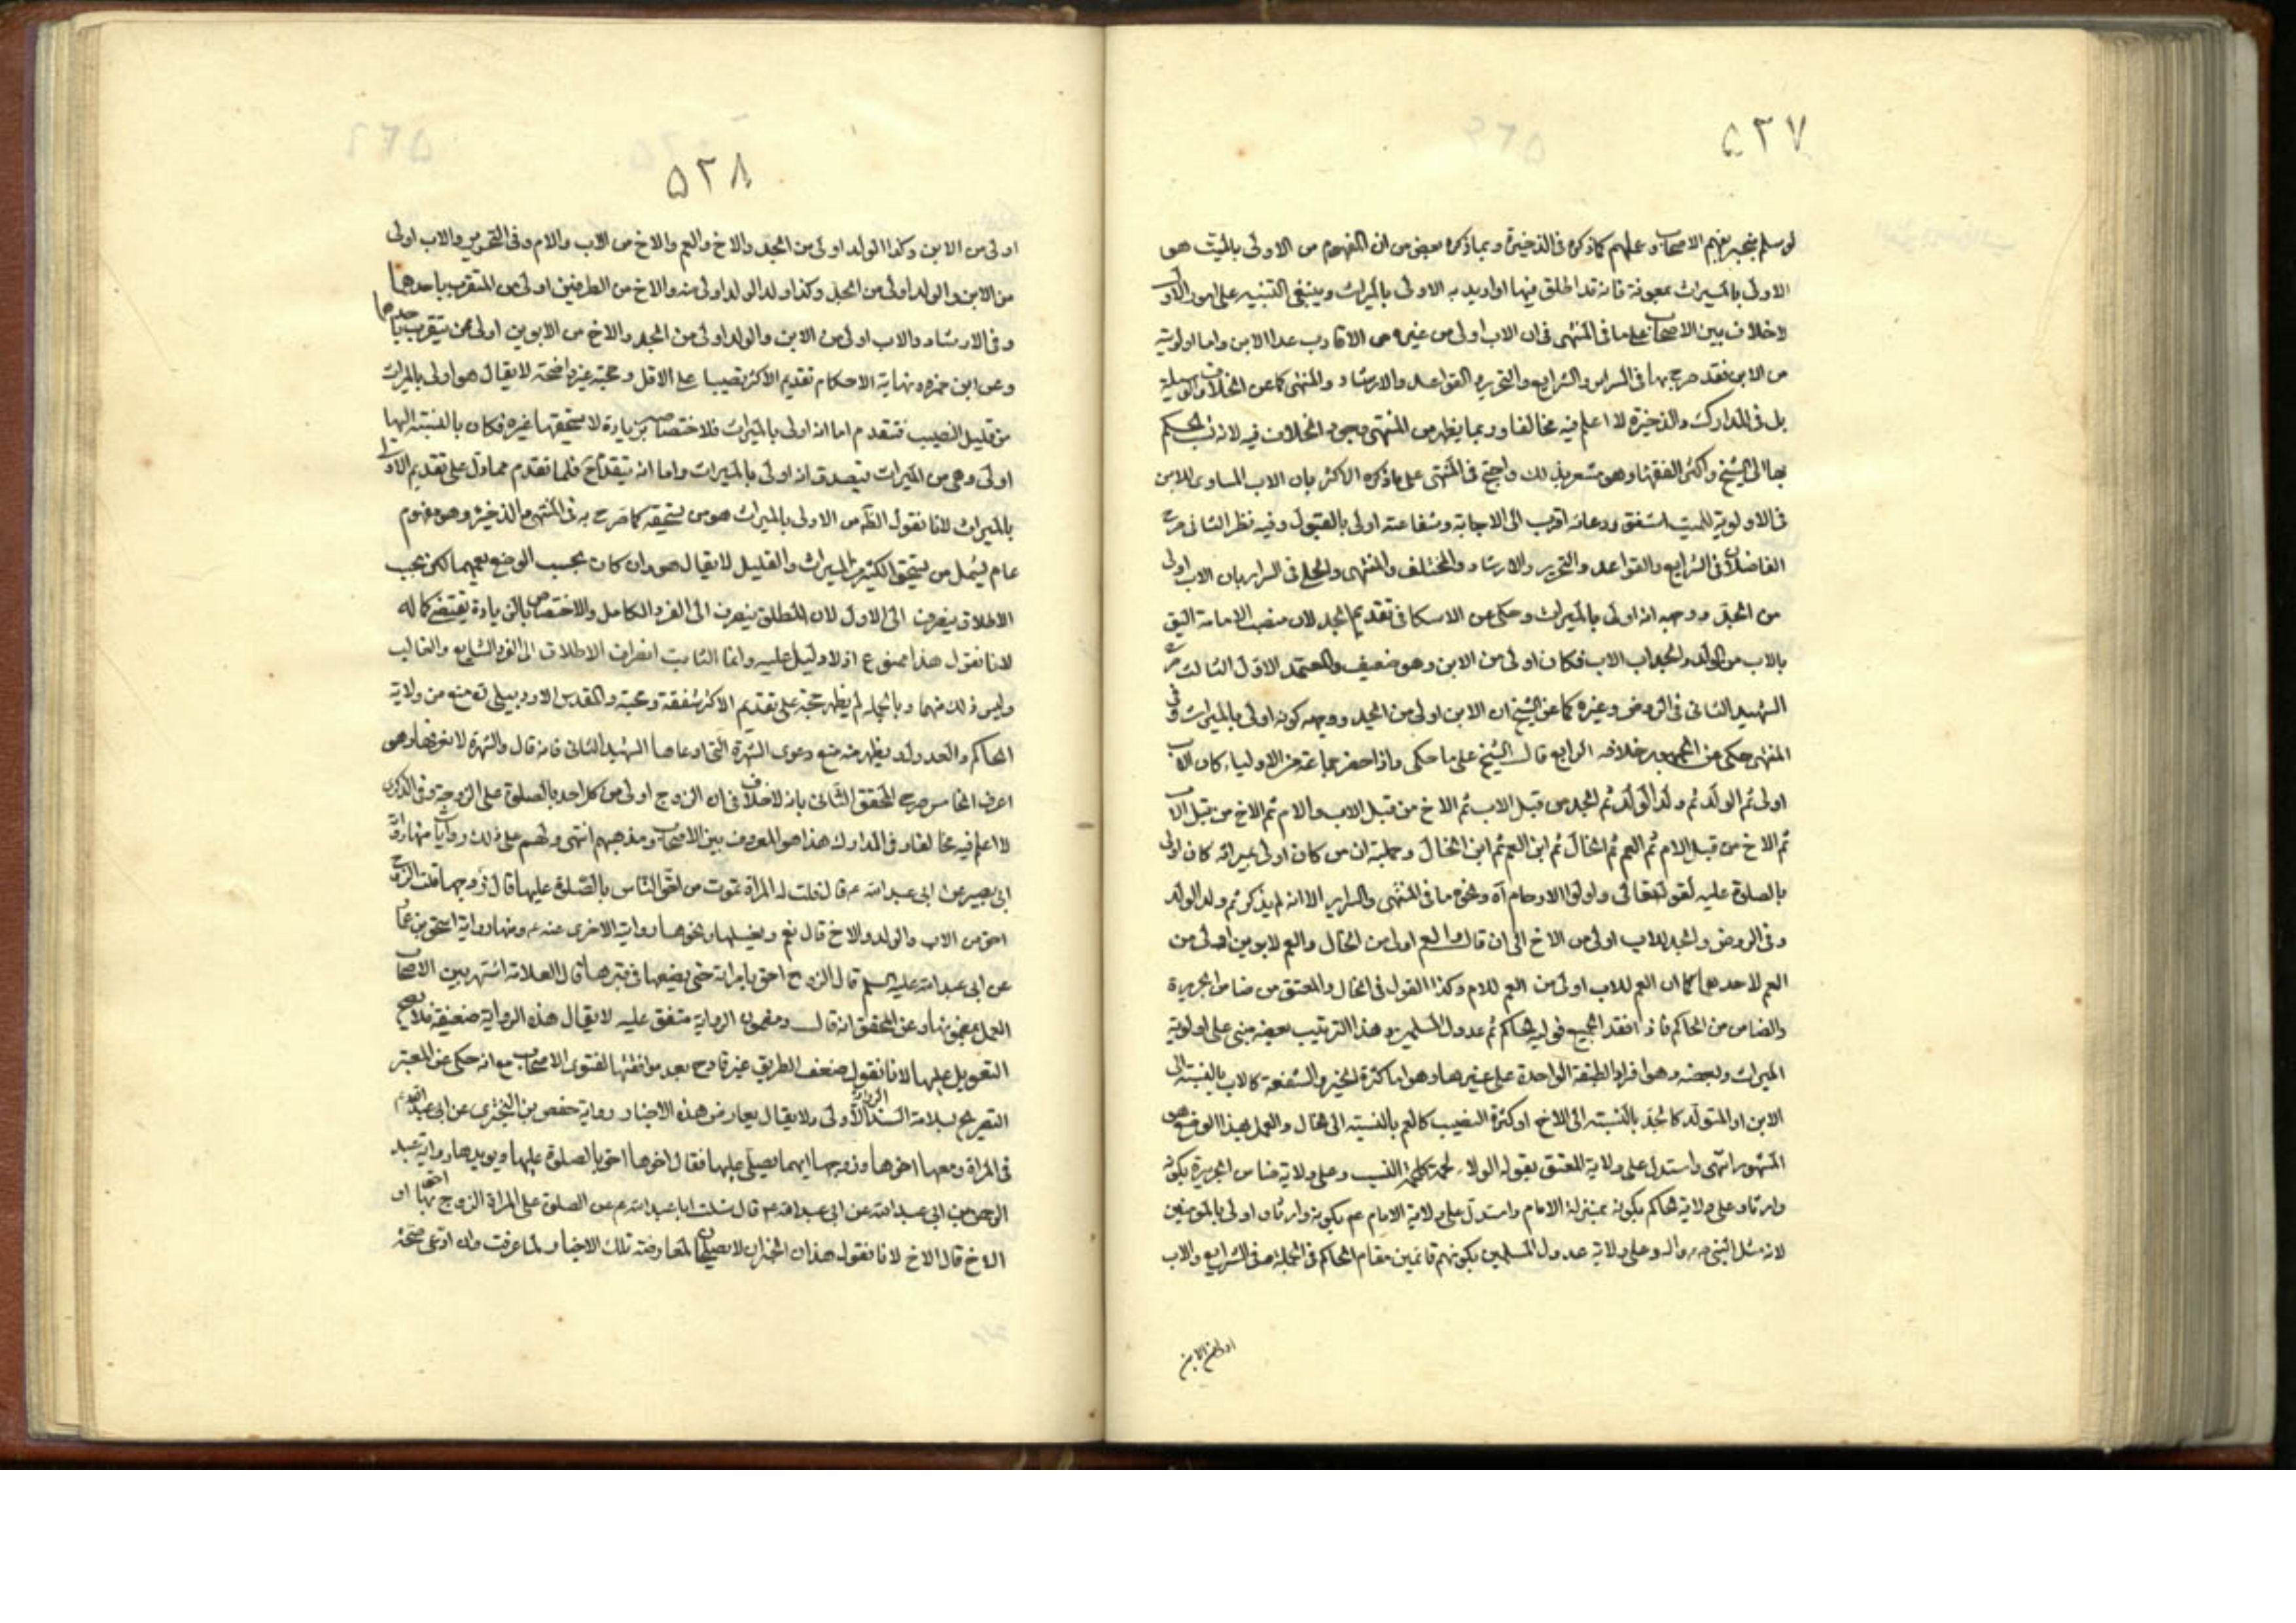 ۵۲۷
لو سلم ينجبر بفهم الاصحاب وعملهم كما ذكره فى الذخيرة وبما ذكره بعض من ان المفهوم من الاولى بالميت هو
الاولى بالميراث بمعونة فانه قد اطلق فيها واريد به الاولى بالميراث وينبغى التنبيه على امور الاول
لا خلاف بين الاصحاب على ما فى المنتهى فى ان الاب اولى من غيره من الاقارب عدا الابن واما اولويته
من الابن فقد صرح بها فى السرائر والشرايع والتحرير والقواعد والارشاد والمنتهى كما عن الخلاف والوسيلة
بل فى المدارك والذخيرة لا اعلم فيه مخالفا وربما يظهر من المنتهى وجود الخلاف فيه لانه نسب الحكم
بها الى الشيخ واكثر الفقهاء وهو مشعر بذلك واحتج فى المنتهى على ما ذكره الاكثر بان الاب المساوى للابن
فى الاولوية للميت اشفق ودعائه اقرب الى الاجابة وشفاعته اولى بالقبول وفيه نظر الثانى صرح
الفاضلان فى الشرايع والقواعد والتحرير والارشاد والمختلف والمنتهى والحلى فى السرائر بان الاب اولى
من الجد ووجهه انه اولى بالميراث وحكى عن الاسكافى تقديم الجد لان منصب الامامة اليق
بالاب من الولد والجد اب الاب فكان اولى من الابن وهو ضعيف والمعتمد الاول الثالث صرح
الشهيد الثانى فى الروض وغيره كما عن الشيخ ان الابن اولى من الجد ووجهه كونه اولى بالميراث وفى
المنتهى حكى عن الجمهور خلافه الرابع قال الشيخ على ما حكى واذا حضر جماعة من الاولياء كان الاب
اولى ثم الولد ثم ولد الولد ثم الجد من قبل الاب ثم الاخ من قبل الاب والام ثم الاخ من قبل الاب
ثم الاخ من قبل الام ثم العم ثم الخال ثم ابن العم ثم ابن الخال وجملته ان من كان اولى بميراثه كان اولى
بالصلوة عليه لقوله تعالى واولوا الارحام اه ونحوه ما فى المنتهى والسراير الا انه لم يذكر ثم ولد الولد
وفى الروض والجد للاب اولى من الاخ الى ان قال والعم اولى من الخال والعم لابوين اولى من
العم لاحدهما كما ان العم للاب اولى من العم للام وكذا القول فى الخال والمعتق من ضامن الجريرة
والضامن من الحاكم فاذا فقد الجميع فوليه الحاكم ثم عدول المسلمين وهذا الترتيب بعضه مبنى على اولوية
الميراث وبعضه وهو افراد الطبقة الواحدة على غيرها وهو اما كثرة الحنو والشفقة كالاب بالنسبة الى
الابن او المتولد كالجد بالنسبة الى الاخ او كثرة النصيب كالعم بالنسبة الى الخال والعمل بهذا الوضع هو
المشهور انتهى واستدل على ولاية المعتق بقوله الولاء لحمة كلحمة النسب وعلى ولاية ضامن الجريرة بكونه
وارثا وعلى ولاية الحاكم بكونه بمنزلة الامام واستدل على ولاية الامام عم بكونه وارثا واولى بالمؤمنين
لانه مثل النبى ص واله وعلى ولاية عدول المسلمين بكونهم قائمين مقام الحاكم فى الجملة وفى الشرايع والاب
اولى من الابن
۵۲۸
اولى من الابن وكذا الولد اولى من الجد والاخ والعم والاخ من الاب والام وفى التحرير والاب اولى
من الابن والولد اولى من الجد وكذا ولد الولد اولى منه والاخ من الطرفين اولى من المتقرب باحدهما
وفى الارشاد والاب اولى من الابن والولد اولى من الجد والاخ من الابوين اولى ممن يتقرب باحدهما
وعن ابن حمزه ونهاية الاحكام تقديم الاكثر نصيبا على الاقل وحجته غير واضحة لا يقال هو اولى بالميراث
من قليل النصيب فتقدم اما انه اولى بالميراث فلاختصاصه بزيادة لا يستحقها غيره فكان بالنسبة اليها
اولى وهى من الميراث فيصدق انه اولى بالميراث واما انه يتقدم ح فلما تقدم مما دل على تقديم الاولى
بالميراث لانا نقول الظ من الاولى بالميراث هو من يستحقه كما صرح به فى المنتهى والذخيرة وهو مفهوم
عام يشمل من يستحق الكثير من الميراث والقليل لا يقال هو وان كان بحسب الوضع يعمهما لكن يجب
الاطلاق ينصرف الى الاول لان المطلق ينصرف الى الفرد الكامل والاختصاص بالزيادة يقتضى كماله
لانا نقول هذا ممنوع اذ لا دليل عليه وانما الثابت انصراف الاطلاق الى الفرد الشايع والغالب
وليس ذلك منهما وبالجملة لم يظهر حجة على تقديم الاكثر شفقة ومحبة والمقدس الاردبيلى ره منع من ولاية
الحاكم والعدول وقد يظهر منه منع دعوى الشهرة التى ادعاها الشهيد الثانى فانه قال والشهرة لا نعرفها وهو
اعرف الخامس صرح المحقق الثانى بانه لا خلاف فى ان الزوج اولى من كل احد بالصلوة على الزوجة وفى الذكرى
لا اعلم فيه مخالفا وفى المدارك هذا هو المعروف بين الاصحاب ومذهبهم انتهى ولهم على ذلك روايات منها رواية
ابى بصير عن ابى عبد الله ع قال قلت له المراة تموت من احق الناس بالصلوة عليها قال زوجها قلت الزوج
احق من الاب والولد والاخ قال نعم ويغسلها ونحوها رواية الاخرى عنه ع ومنها رواية اسحق بن عمار
عن ابى عبد الله عليه السلم قال الزوج احق بامراته حتى يضعها فى قبرها قال العلامة اشتهر بين الاصحاب
العمل بمضمونها وعن المحقق انه قال ومضمون الرواية متفق عليه لا يقال هذه الرواية ضعيفة فلا يصح
التعويل عليها لانا نقول ضعف الطريق غير قادح بعد موافقتها لفتوى الاصحاب مع انه حكى عن المعتبر
التصريح بسلامة السند الرواية الاولى ولا يقال يعارض هذه الاخبار رواية حفص بن البخترى عن ابى عبد الله ع
فى المراة ومعها اخوها وزوجها ايهما يصلى عليها فقال اخوها احق بالصلوة عليها ويؤيدها رواية عبد
الرحمن بن ابى عبد الله عن ابى عبد الله ع قال سئلت ابا عبد الله ع عن الصلوة على المراة الزوج احق بها او
الاخ قال الاخ لانا نقول هذان الخبران لا يصلحان لمعارضة تلك الاخبار لما عرفت وان ادعى صحة